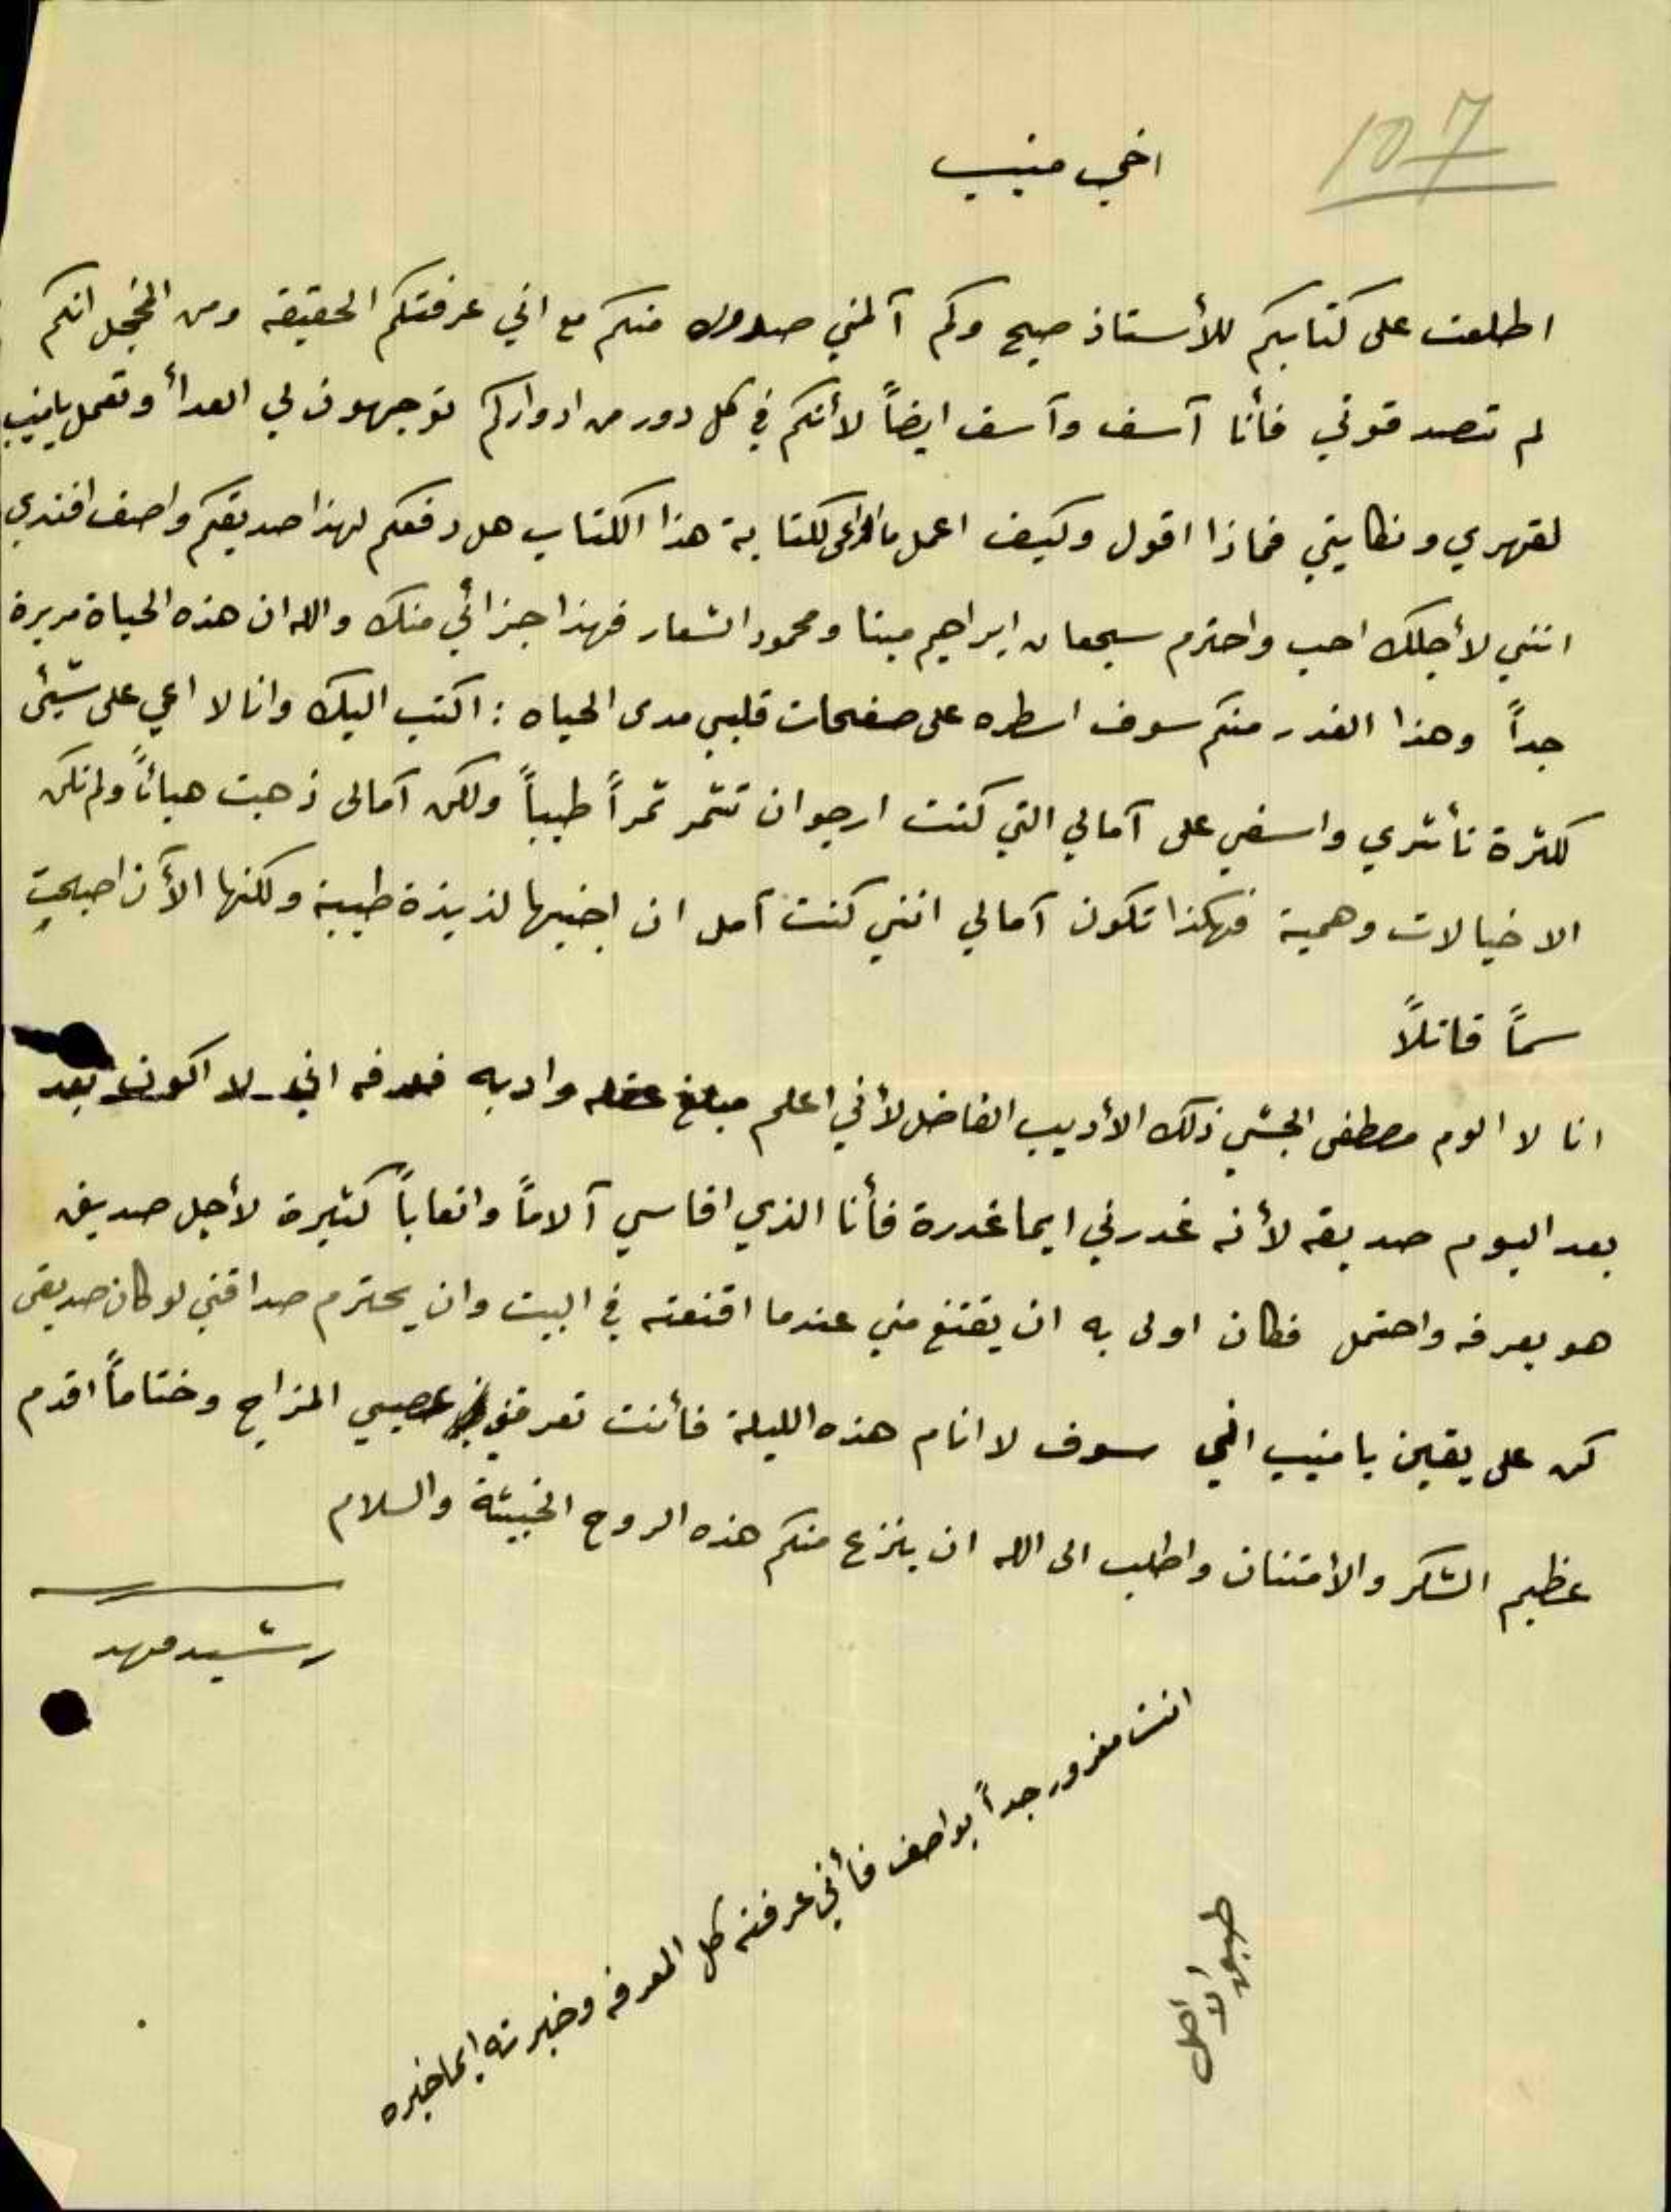 107
اخي منيب
اطلعت على كتابكم للأستاذ صبح وكم آلمني صدوره منكم مع اني عرفتكم الحقيقه ومن المخجل انكم
لم تصدقوني فأنا آسف وآسف ايضاً لأنكم في كل دور من ادواركم توجهون لي العداء وتعمل يا منيب
لقهري ونكايتي فماذا اقول وكيف اعمل ما الداعي لكتابة هذا الكتاب هل دفعكم لهذا صديقكم واصف افندي
انني لأجلك احب واحترم سمعان ابراهيم مينا ومحمود الشعار فهذا جزائي منك والله ان هذه الحياة مريرة
جداً وهذا الغدر منكم سوف اسطره على صفحات قلبي مدى الحياه : اكتب اليك وانا لا اعي على شيئ
لكثرة تأثري واسفي على آمالي التي كنت ارجو ان تثمر ثمراً طيباً ولكن آمالى ذهبت هبائاً ولم تكن
الا خيالات وهمية فهكذا تكون آمالي انني كنت آمل ان اجنيها لذيذة طيبة ولكنها الأن اصبحت
سماً قاتلاً
انا لا الوم مصطفى الجشي ذلك الأديب الفاضل لأني اعلم مبلغ عقله وادبه فلعرفه اني لا اكون بعد
بعد اليوم صديقه لأنه غدرني ايما غدرة فأنا الذي اقاسي آلاماً واتعاباً كثيرة لأجل صديق
هو يعرفه واحتمل فكان اولى به ان يقتنع مني عندما اقنعته في البيت وان يحترم صداقتي لو كان صديقى
كن على يقين يا منيب اني سوف لا انام هذه الليلة فأنت تعرفني عصبي المزاج وختاماً اقدم
عظيم الشكر والأمتنان واطلب الى الله ان ينزع منكم هذه الروح الخبيثة والسلام
رشيد فهد
انت مغرور جداً بواصف فأني عرفته كل المعرفه وخبرته ايما خبره
طبق الأصل